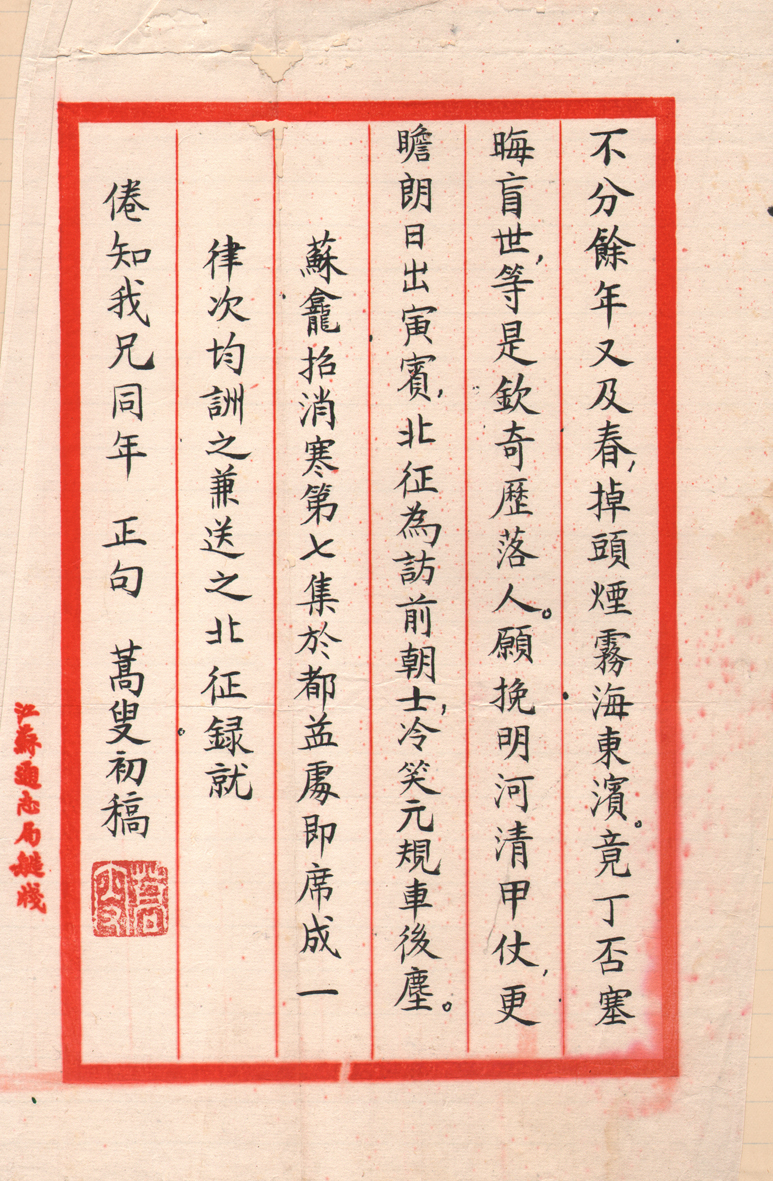 不分餘年又及春，掉頭煙霧海東濱。竟丁否塞
晦盲世，等是欽奇歷落人。願挽明河清甲仗，更
瞻朗日出寅賓，北征為訪前朝士，冷笑元規車後塵。
蘇龕招消寒第七集於都益處即席成一
律次均詶之兼送之北征録就
倦知我兄同年 正句 蒿叟初稿
蒿叟
江蘇通志局